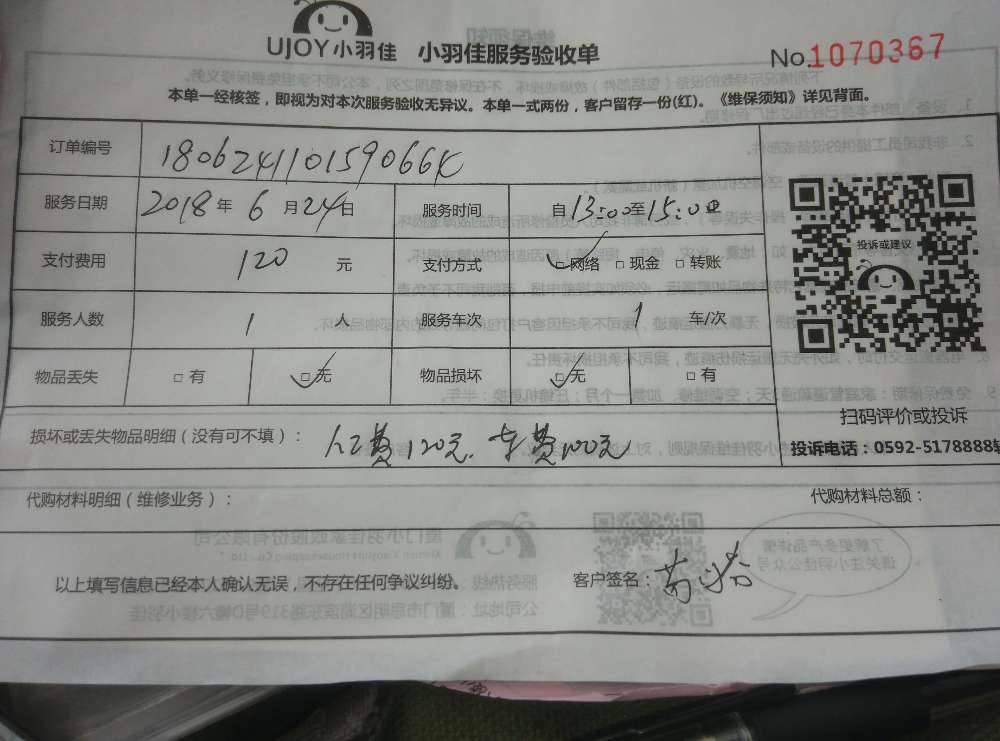 UJOY小羽佳 小羽佳服务验收单 No.1070367
本单一经核签，即视为对本次服务验收无异议。本单一式两份，客户留存一份(红)。《维保须知》详见背面。
订单编号 180624110159066K
服务日期 2018 年 6 月 24 日 服务时间 自 13:00 至 15:00
支付费用 120 元 支付方式 ☑网络 □现金 □转账
服务人数 1 人 服务车次 1 车/次
物品丢失 □有 ☑无 物品损坏 ☑无 □有
投诉或建议
扫码评价或投诉
投诉电话：0592-5178888转
损坏或丢失物品明细（没有可不填）： 人工费120元. 车费100元
代购材料明细（维修业务）： 代购材料总额：
以上填写信息已经本人确认无误，不存在任何争议纠纷。 客户签名：